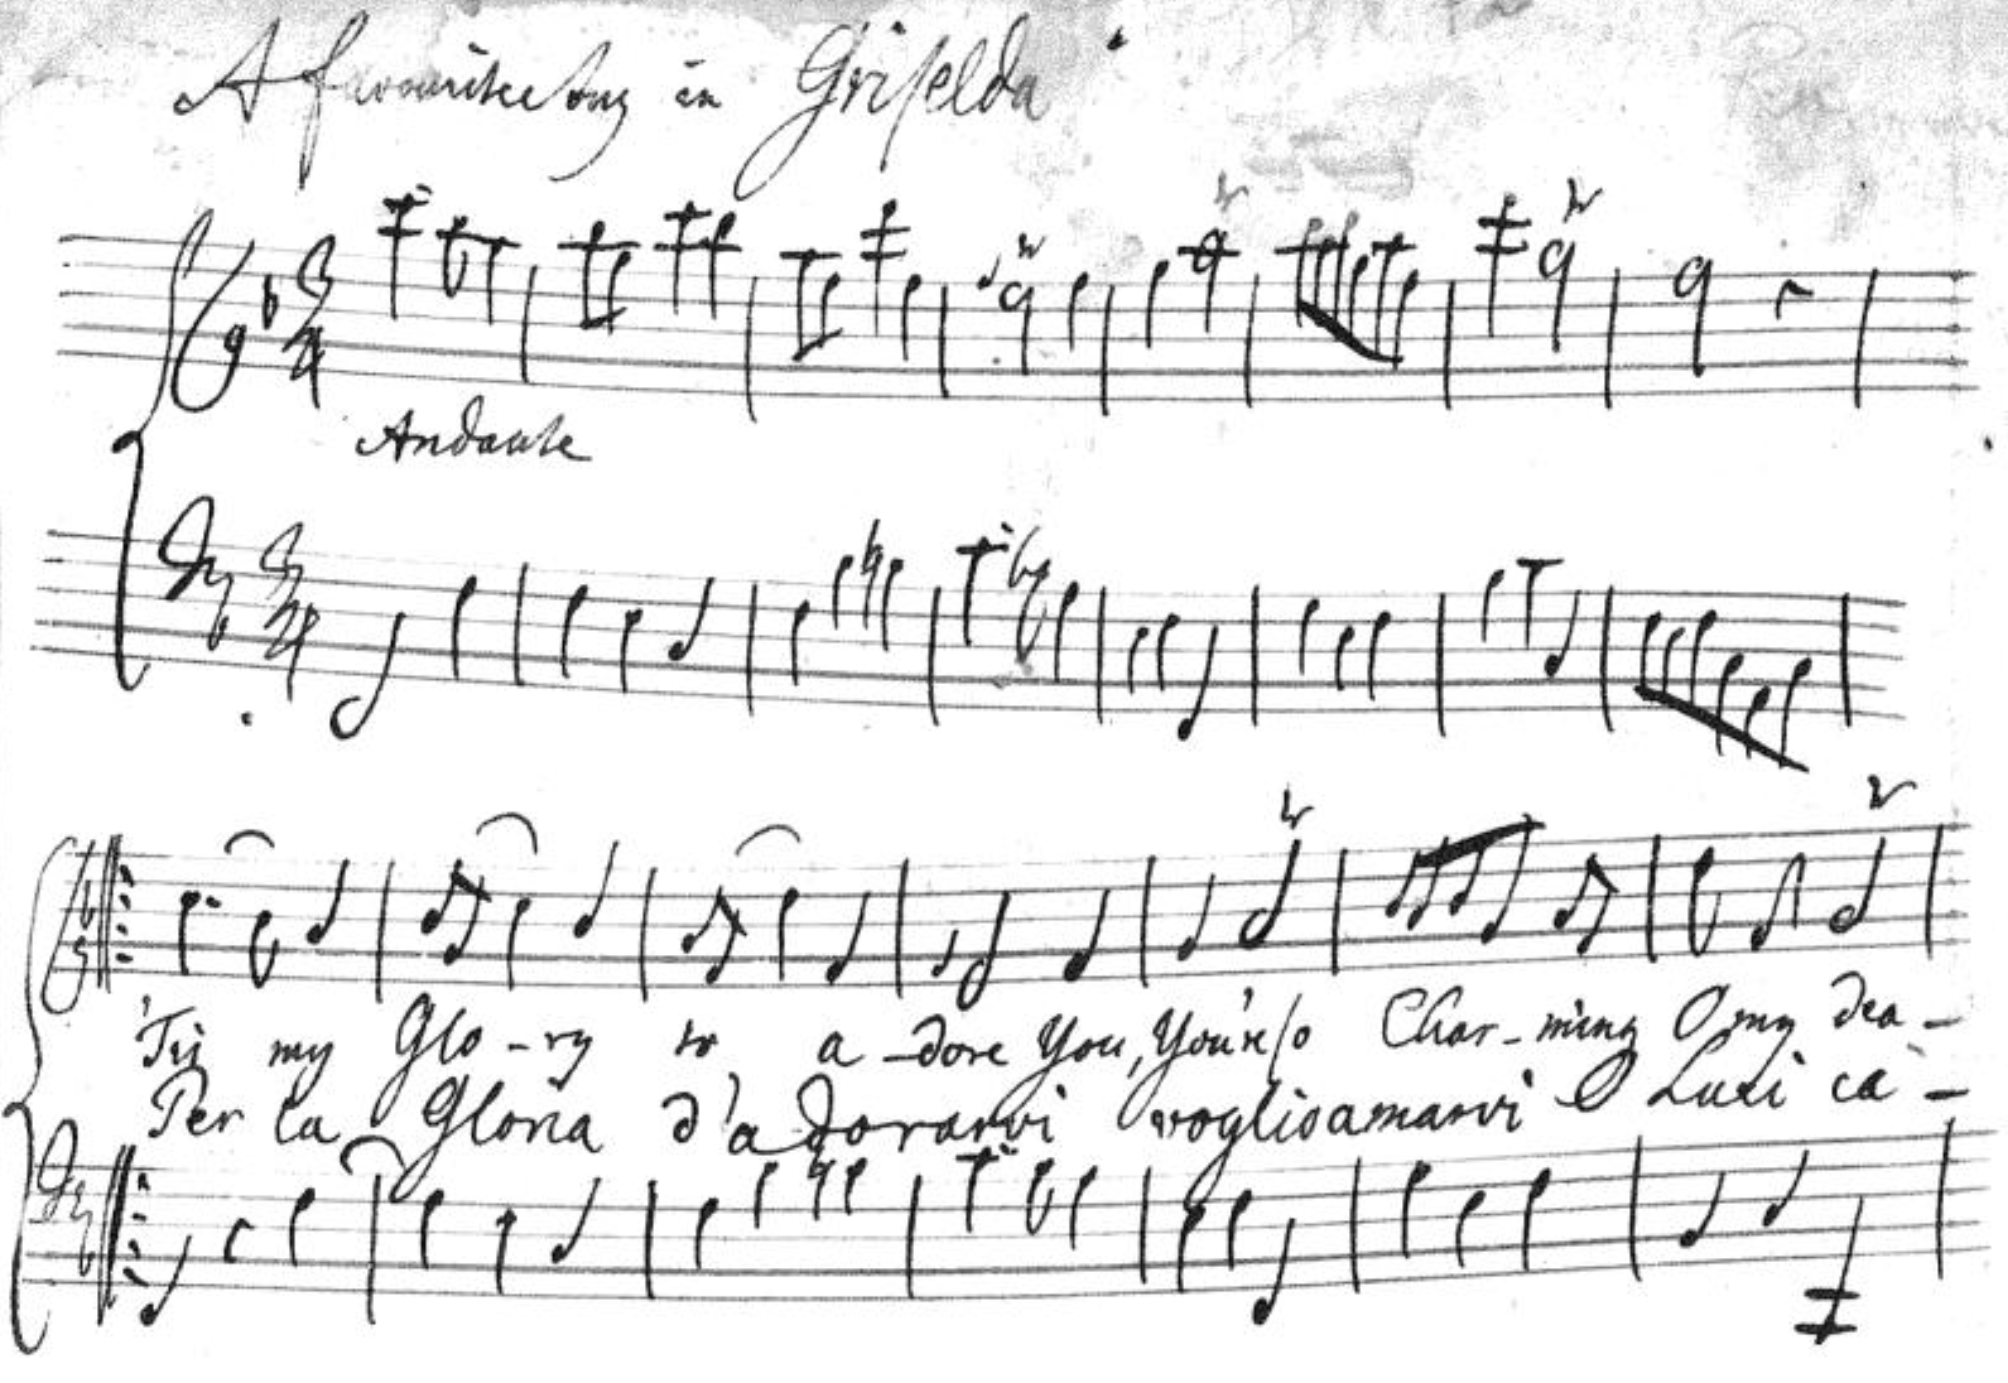 A favourite Song in Griselda
Andante
'Tis my Glo-ry to a-dore You, You're so Char-ming O my dea-
Per la Gloria d'adorarvi voglio amarvi O Luci ca-